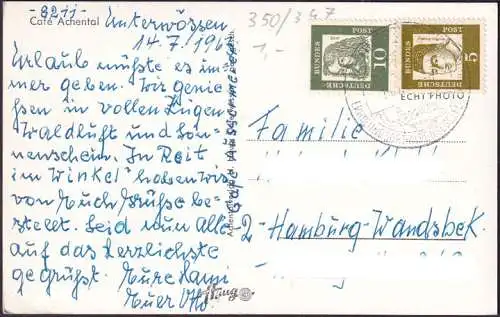 -8211-
Café Achental
Unterwössen
14.7.196
350/347
1,-
Urlaub müßte es im-
mer geben. Wir genie-
ßen in vollen Zügen
Waldluft und Son-
nenschein. In Reit
im Winkel haben wir
von Euch Grüße be-
stellt. Seid nun Alle
auf das herzlichste
gegrüßt. Eure
Euer Otto.
DEUTSCHE
BUNDES
POST
10
DEUTSCHE
BUNDES
POST
5
ECHT PHOTO
Familie
2-Hamburg-Wandsbek.